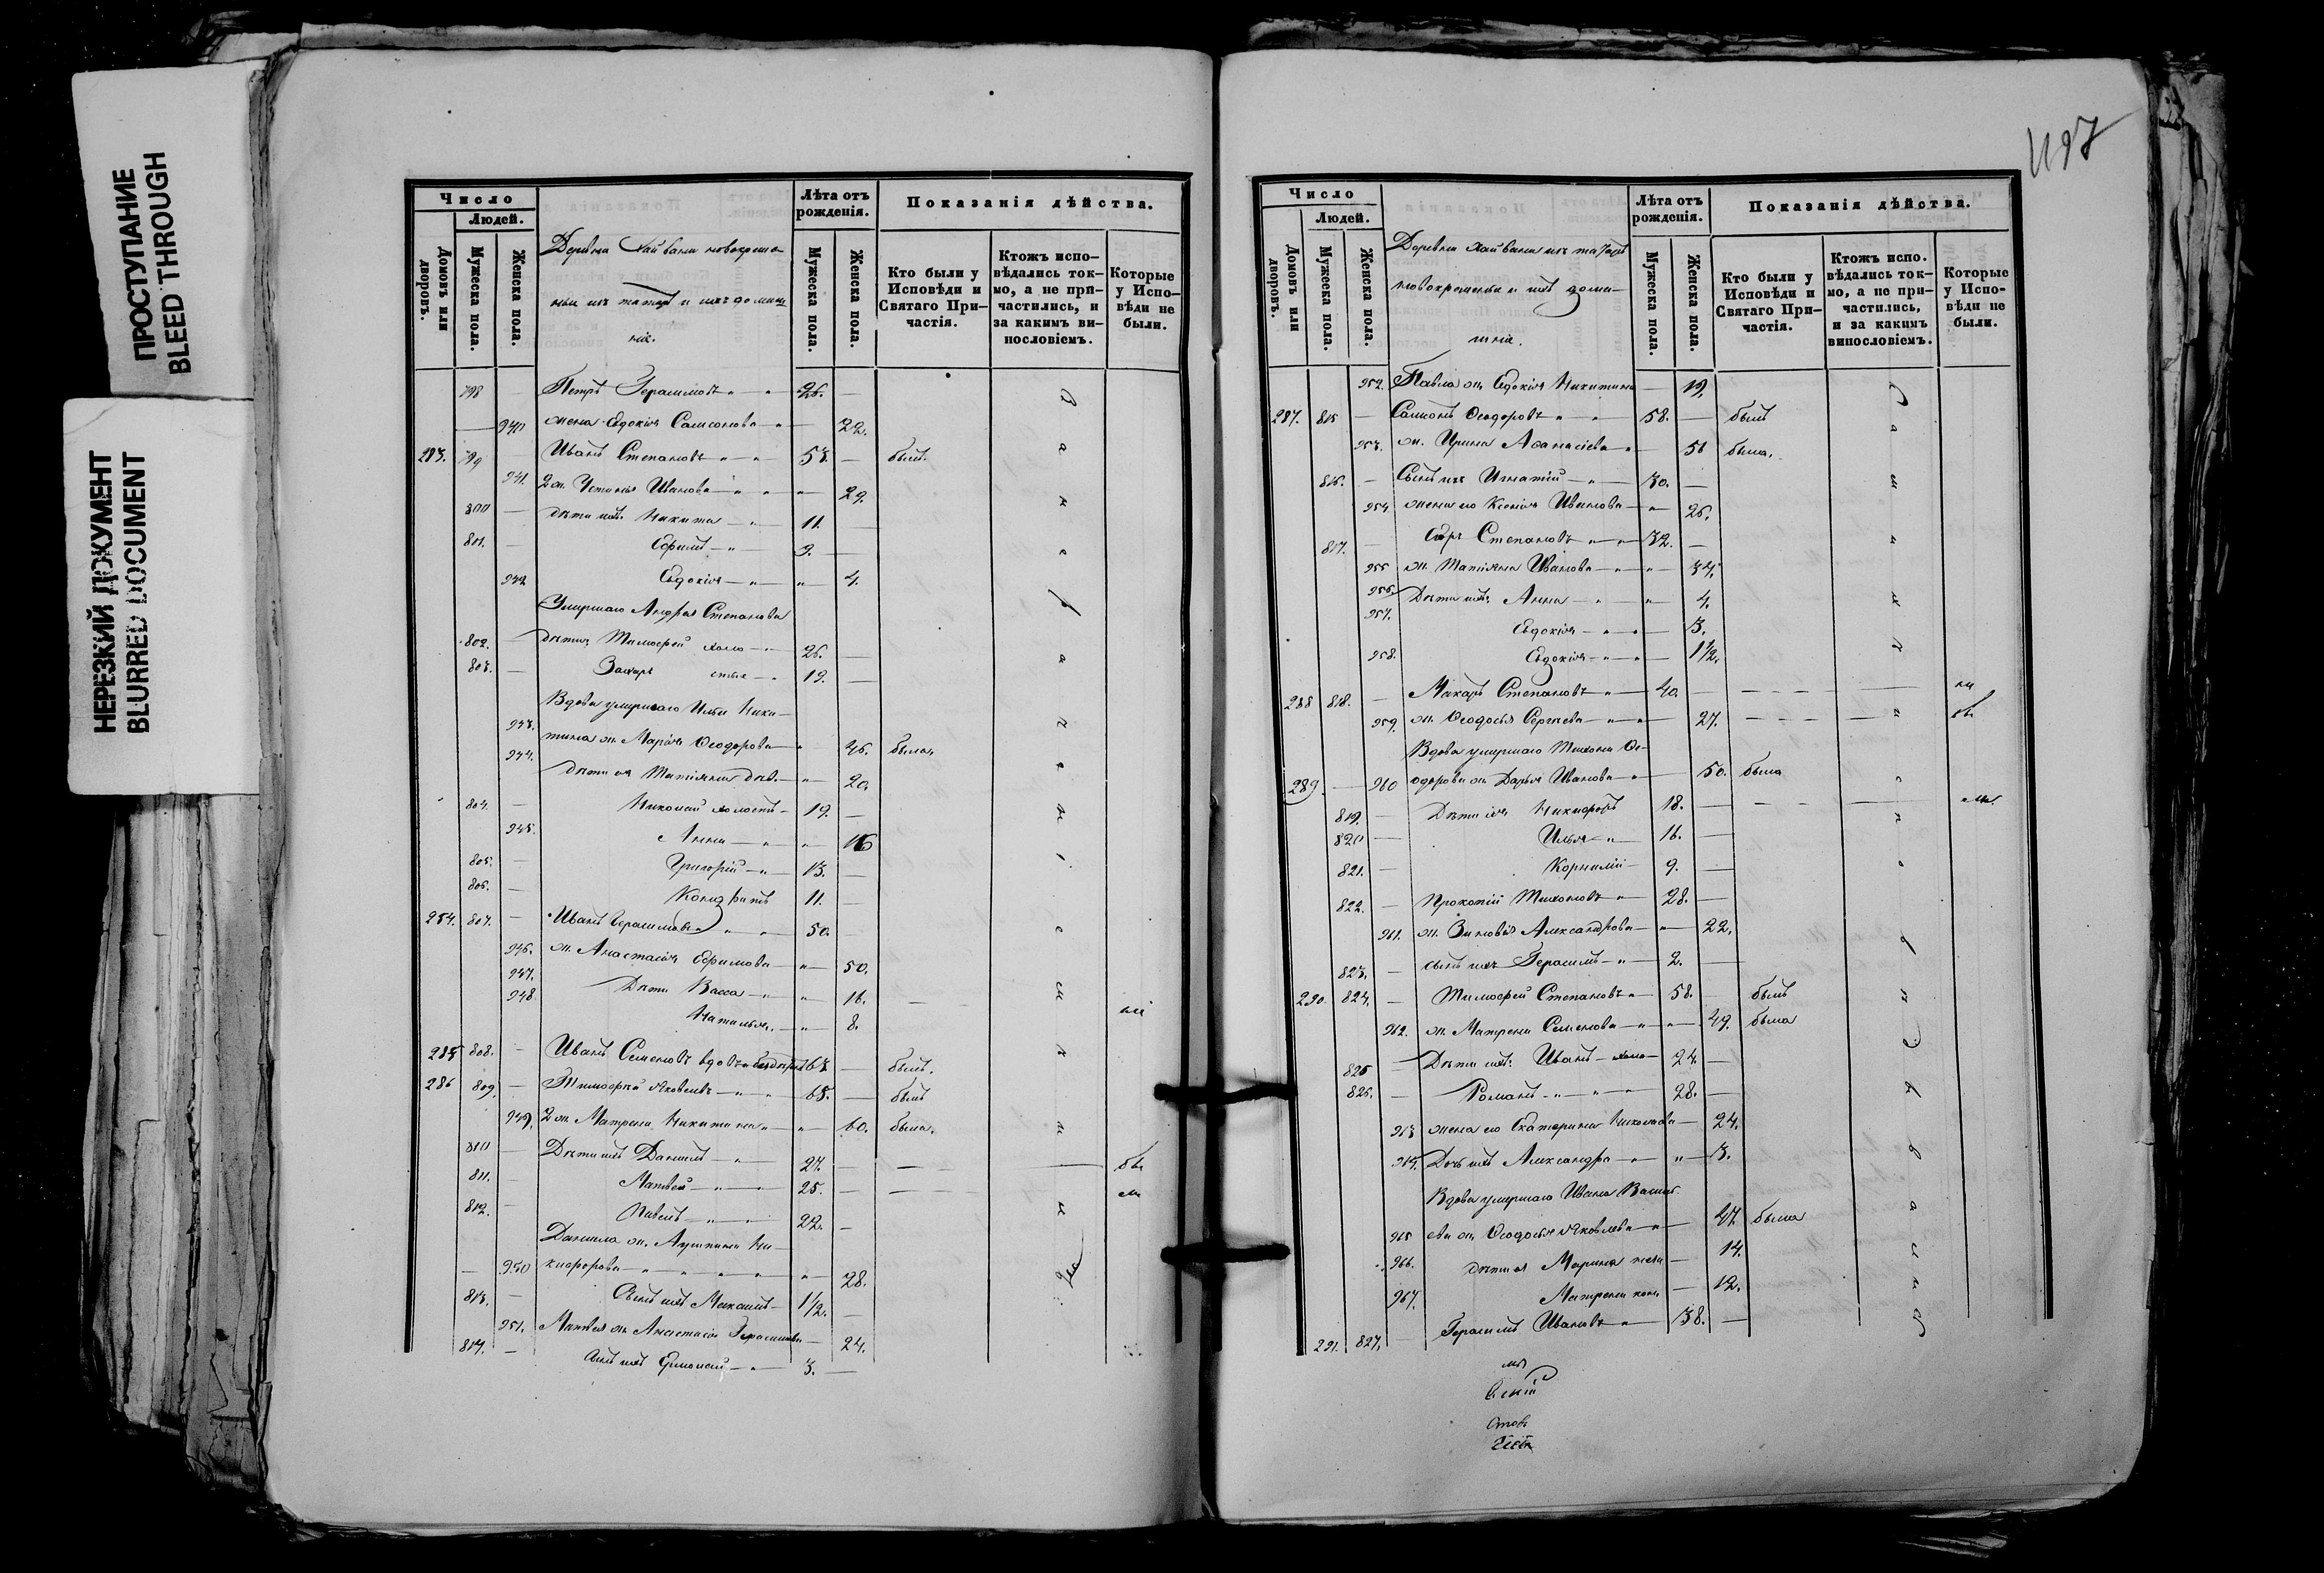 ПРОСТУПАНИЕ
BLEED THROUGH
НЕРЕЗКИЙ ДОКУМЕНТ
BLURRED DOCUMENT
Число
Людей.
Домовъ или дворовъ.
Мужеска пола.
Женска пола.
Деревни Хайвани новокреще-
ныи изъ татаръ и ихъ домаш
нiе.
Лѣта отъ рожденія.
Мужеска пола.
Женска пола.
Показанія дѣйства.
Кто были у Исповѣди и Святаго При-частія.
Ктожъ испо-вѣдались ток-мо, а не при-частились, и за какимъ ви-нословіемъ.
Которые у Испо-вѣди не были.
798 — Петръ Герасимовъ 26. —
— 940 жена Евдокія Самсонова — 22.
283. 799 Иванъ Степановъ 53. — былъ.
941. 2 ж. Устинья Иванова — 29.
800 — дѣти ихъ Никита 11. —
801. — Ефримъ 9. —
942 Евдокія — 4.
Умершаго Андрея Степанова
802. — дѣти Тимофей холо 26. —
803. — Захаръ стые 19. —
Вдова умершаго Ильи Ники-
943. тина ж. Марія Ѳеодорова 46. была
944. дѣти ея Татіяна дѣв. — 20.
804. — Николай холостъ 19. —
945. Анна — 16
805. — Григорій 13. —
806. — Кондратъ 11. —
254. 807. — Иванъ Герасимовъ 50. —
946. ж. Анастасія Ефимова — 50.
947. Дѣти Васса — 16. —
948. Наталья — 8.
285 808. — Иванъ Семеновъ вдовъ 63 — былъ.
286 809. — Тимофей Яковлевъ 65. — былъ
949. 2 ж. Матрена Никитина — 60. была.
810 — Дѣти ихъ Даниилъ 27. —
811. — Матвей 25. —
812. — Павелъ 22. —
Данила ж. Лукина Ни-
950 кифорова — 28.
813. — Сынъ ихъ Михаилъ 1 1/2. —
951. Матвея ж. Анастасія Герасимова — 24.
814. — Сынъ ихъ Ермолай 3. —
1197
Число
Людей.
Домовъ или дворовъ.
Мужеска пола.
Женска пола.
Деревни Хайвани изъ татаръ
новокрещены и ихъ дома-
шніе.
Лѣта отъ рожденія.
Мужеска пола.
Женска пола.
Показанія дѣйства.
Кто были у Исповѣди и Святаго При-частія.
Ктожъ испо. вѣдались ток-мо, а не при-частились, и за какимъ винословіемъ.
Которые у Испо-вѣди не были.
952. Павла ж. Евдокія Никитина — 19.
287. 815 — Самсонъ Ѳеодоровъ 58. — былъ
953. ж. Ирина Аѳанасіева — 56 была.
816. — Сынъ ихъ Игнатій 30. —
954 жена его Ксенія Иванова — 26.
817. — Степановъ 32. —
955 ж. Татіяна Иванова — 34.
956. Дѣти ихъ Анна — 4.
957. Евдокія — 3.
958. Евдокія — 1 1/2.
288 818. — Макаръ Степановъ 40. —
959. ж. Ѳеодосья Сергѣева — 27.
Вдова умершаго Тихона Ѳе-
289. — 960 одорова ж. Дарья Иванова — 50. была
819. — Дѣти ея Никифоръ 18. —
820 — Илья 16. —
821. — Корнилій 9. —
822. — Прокопій Тихоновъ 28. —
961. ж. Зиновія Александрова — 22.
823. — сынъ ихъ Герасимъ 2. —
290. 824. — Тимофей Степановъ 58. — былъ
962. ж. Матрена Семенова — 49. была
825 — Дѣти ихъ Иванъ холо 24 —
826. — Романъ 28. —
963 жена его Екатерина Николаева — 24.
964. Дочь ихъ Александра — 3.
Вдова умершаго Ивана Василь
965 ева ж. Ѳеодосья Яковлева — 47 была
966. дѣти ея Марина — 14.
967. Матрена — 12.
291. 827. — Герасимъ Ивановъ 38. —